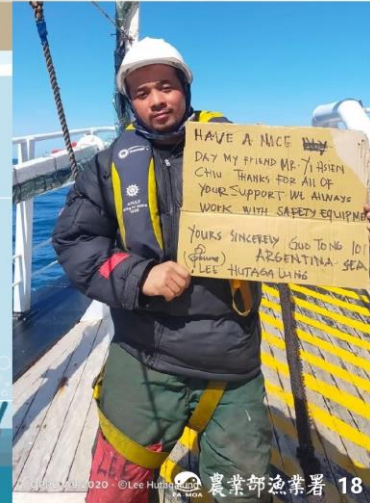 HAVE A NICE
DAY MY FRIEND MR. YI HSIEN
CHIU THANKS FOR ALL OF
YOUR SUPPORT WE ALWAYS
WORK WITH SAFETY EQUIPME
YOURS SINCERELY GUO TONG 101
ARGENTINA SEA
LEE HUTAGALUNG
LEE
2020 - ©Lee Hutagalung
FA MOA
農業部漁業署 18